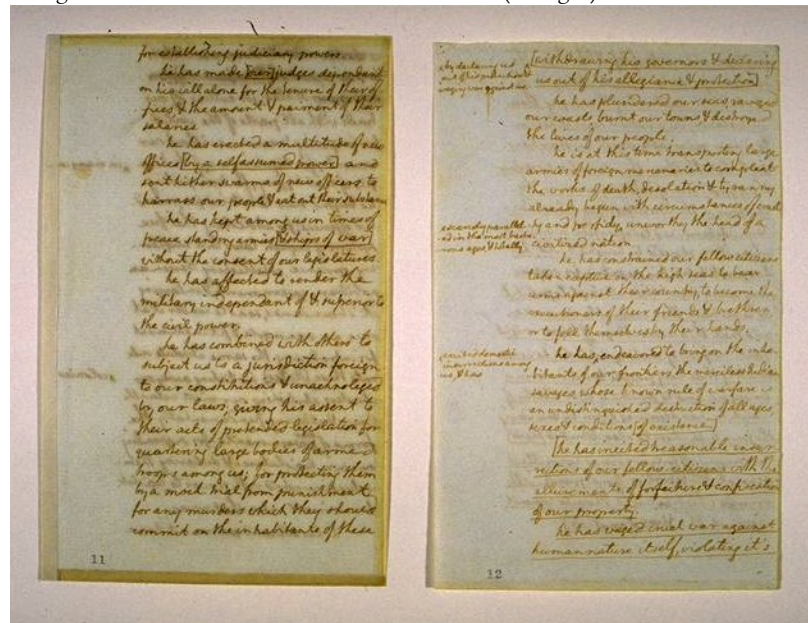 for establishing judiciary powers.
he has made [our] judges dependant
on his will alone for the tenure of their of-
fices & the amount & paiment of their
salaries
he has erected a multitude of new
offices [by a self assumed power] and
sent hither swarms of new officers to
harrass our people & eat out their substance
he has kept among us in times of
peace standing armies [& ships of war]
without the consent of our legislatures.
he has affected to render the
military independent of & superior to
the civil power.
he has combined with others to
subject us to a jurisdiction foreign
to our constitutions & unacknoleged
by our laws, giving his assent to
their acts of pretended legislation for
quartering large bodies of armed
troops among us; for protecting them
by a mock trial from punishment
for any murders which they should
commit on the inhabitants of these
11
by declaring us
out of his protection &
waging war against us
[withdrawing his governors & declaring
us out of his allegiance & protection]
he has plundered our seas, ravaged
our coasts burnt our towns & destroyed
the lives of our people.
he is at this time transporting large
armies of foreign mercenaries to compleat
the works of death, desolation & tyranny
already begun with circumstances of cruel-
scarcely parallel-
ed in the most barba-
rous ages & totally
ty and perfidy unworthy the head of a
civilized nation
he has constrained our fellow citizens
taken captive on the high seas to bear
arms against their country, to become the
executioners of their friends & brethren
or to fall themselves by their hands.
excited domestic
insurrections among
us & has
he has endeavored to bring on the inha-
bitants of our frontiers the merciless Indian
savages, whose known rule of warfare is
an undistinguished destruction of all ages,
sexes & conditions [of existence]
[he has incited treasonable insur-
rections of our fellow citizens with the
allurements of forfeiture & confiscation
of our property.
he has waged cruel war against
human nature itself, violating it's
12